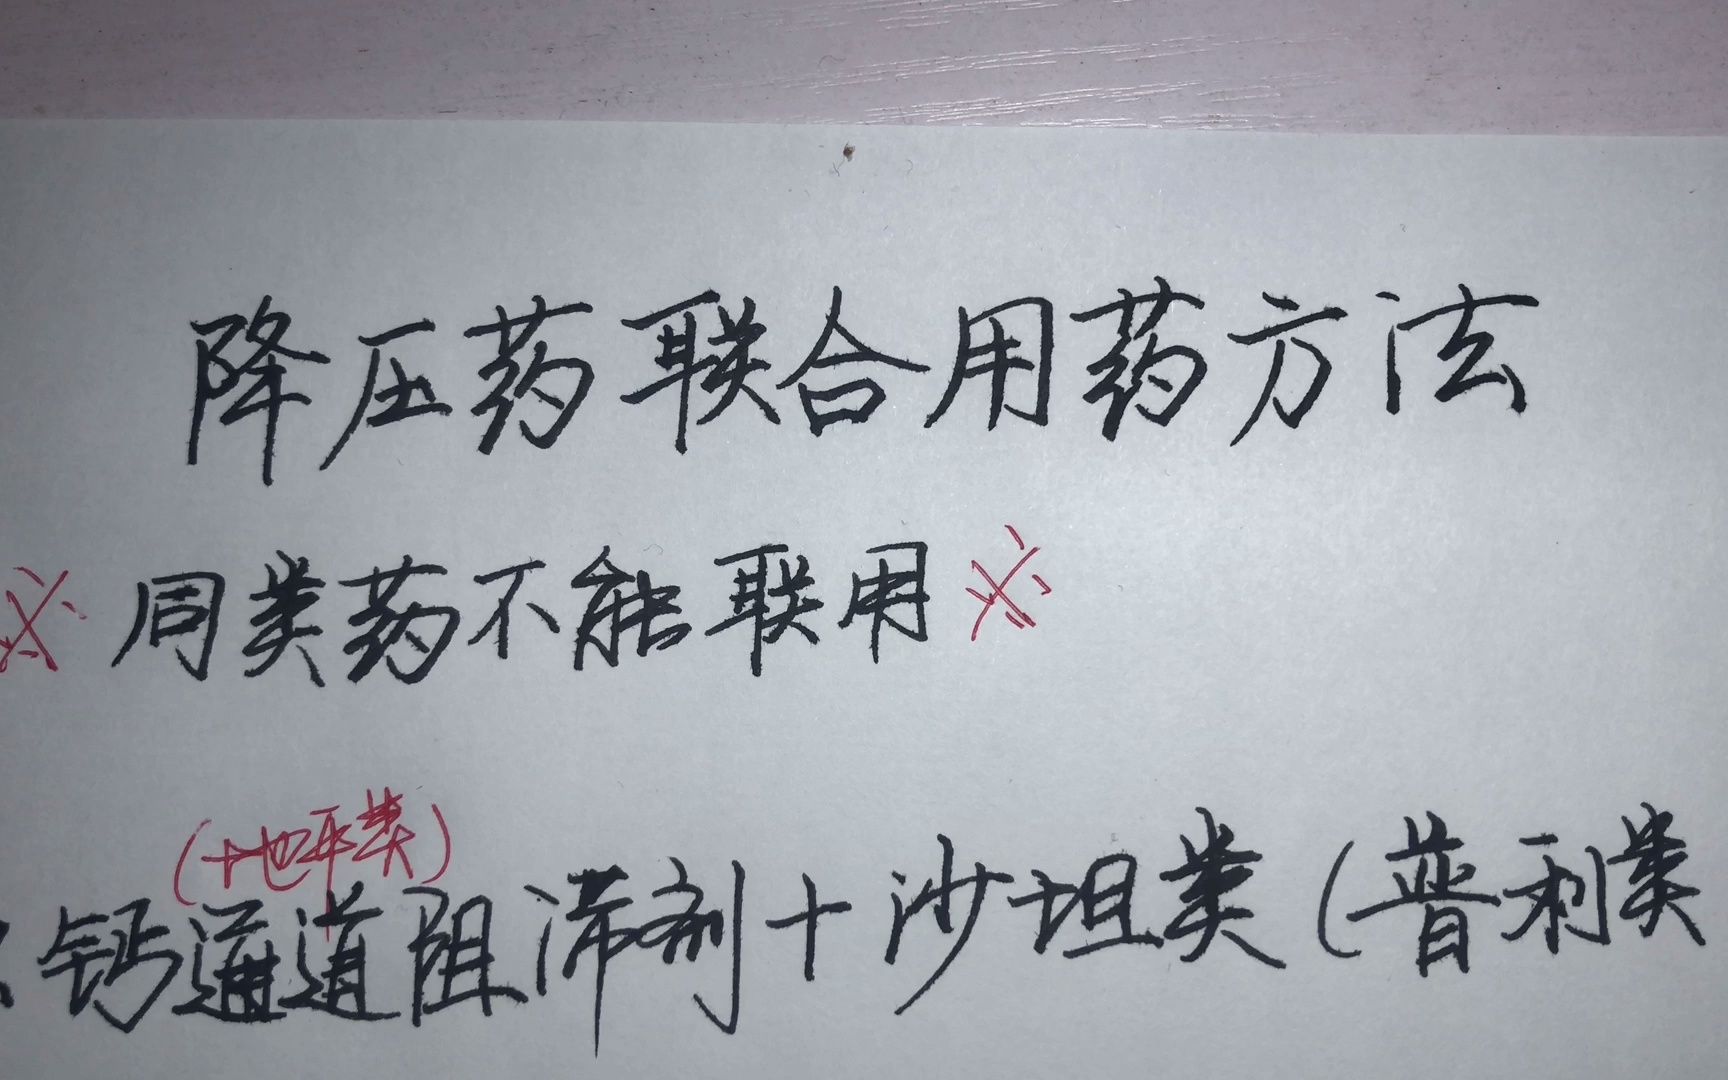 降压药联合用药方法
※同类药不能联用※
(地平类)
钙通道阻滞剂+沙坦类(普利类